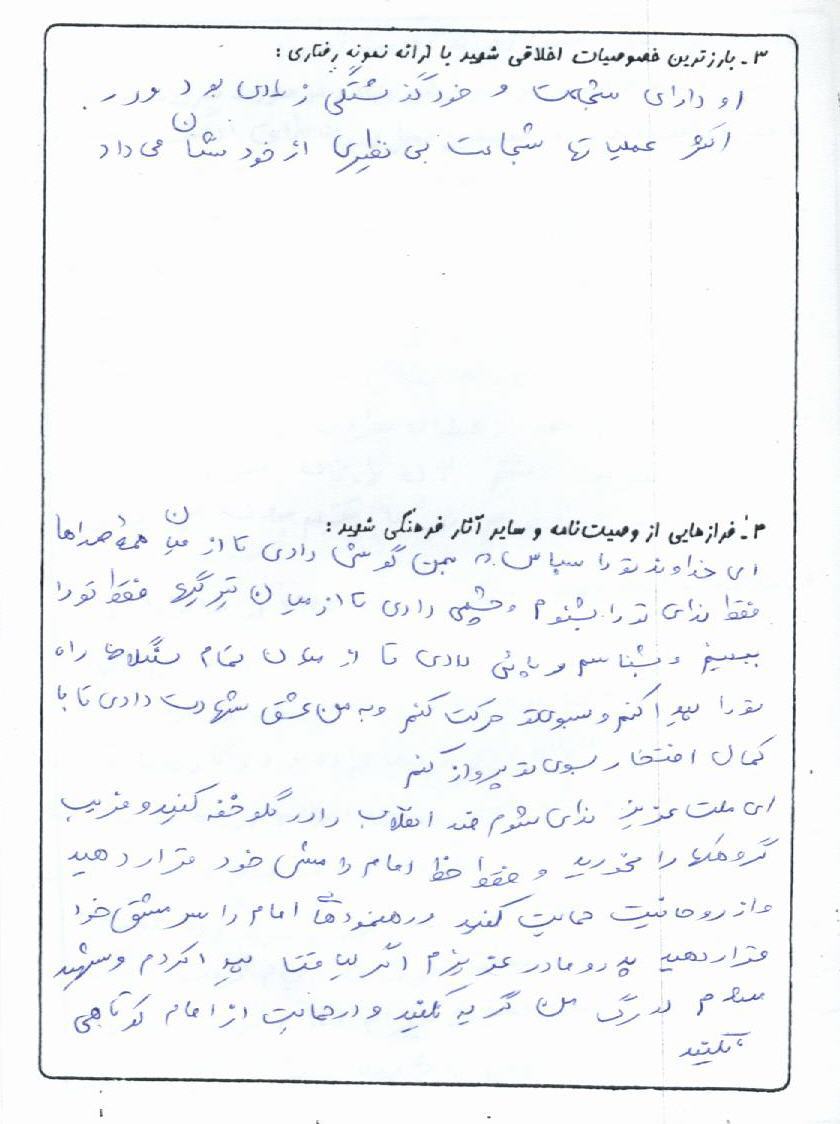 ۳- بارزترین خصوصیات اخلاقی شهید با ارائه نمونه رفتاری :
او دارای شجاعت و خودگذشتگی زیادی بود و در
اکثر عملیاتها شجاعت بی نظیری از خود نشان می داد
۴- فرازهایی از وصیت‌نامه و سایر آثار فرهنگی شهید :
ای خداوند تو را سپاس به من گوش دادی تا از میان همهٔ صداها
فقط ندای تو را بشنوم و چشمی دادی تا از میان تیرگیها فقط تو را
ببینم و بشناسم و پائی دادی تا از میان تمام سنگلاخها راه
تو را پیدا کنم و بسوی تو حرکت کنم و به من عشق شهادت دادی تا با
کمال افتخار بسوی تو پرواز کنم
ای ملت عزیز ندای شوم ضد انقلاب را در گلو خفه کنید و فریب
گروهکها را نخورید و فقط خط امام را مشی خود قرار دهید
و از روحانیت حمایت کنید و رهنمودهای امام را سر مشق خود
قرار دهید پدر و مادر عزیزم اگر لیاقت پیدا کردم و شهید
شدم در مرگ من گریه نکنید و در حمایت از امام کوتاهی
نکنید